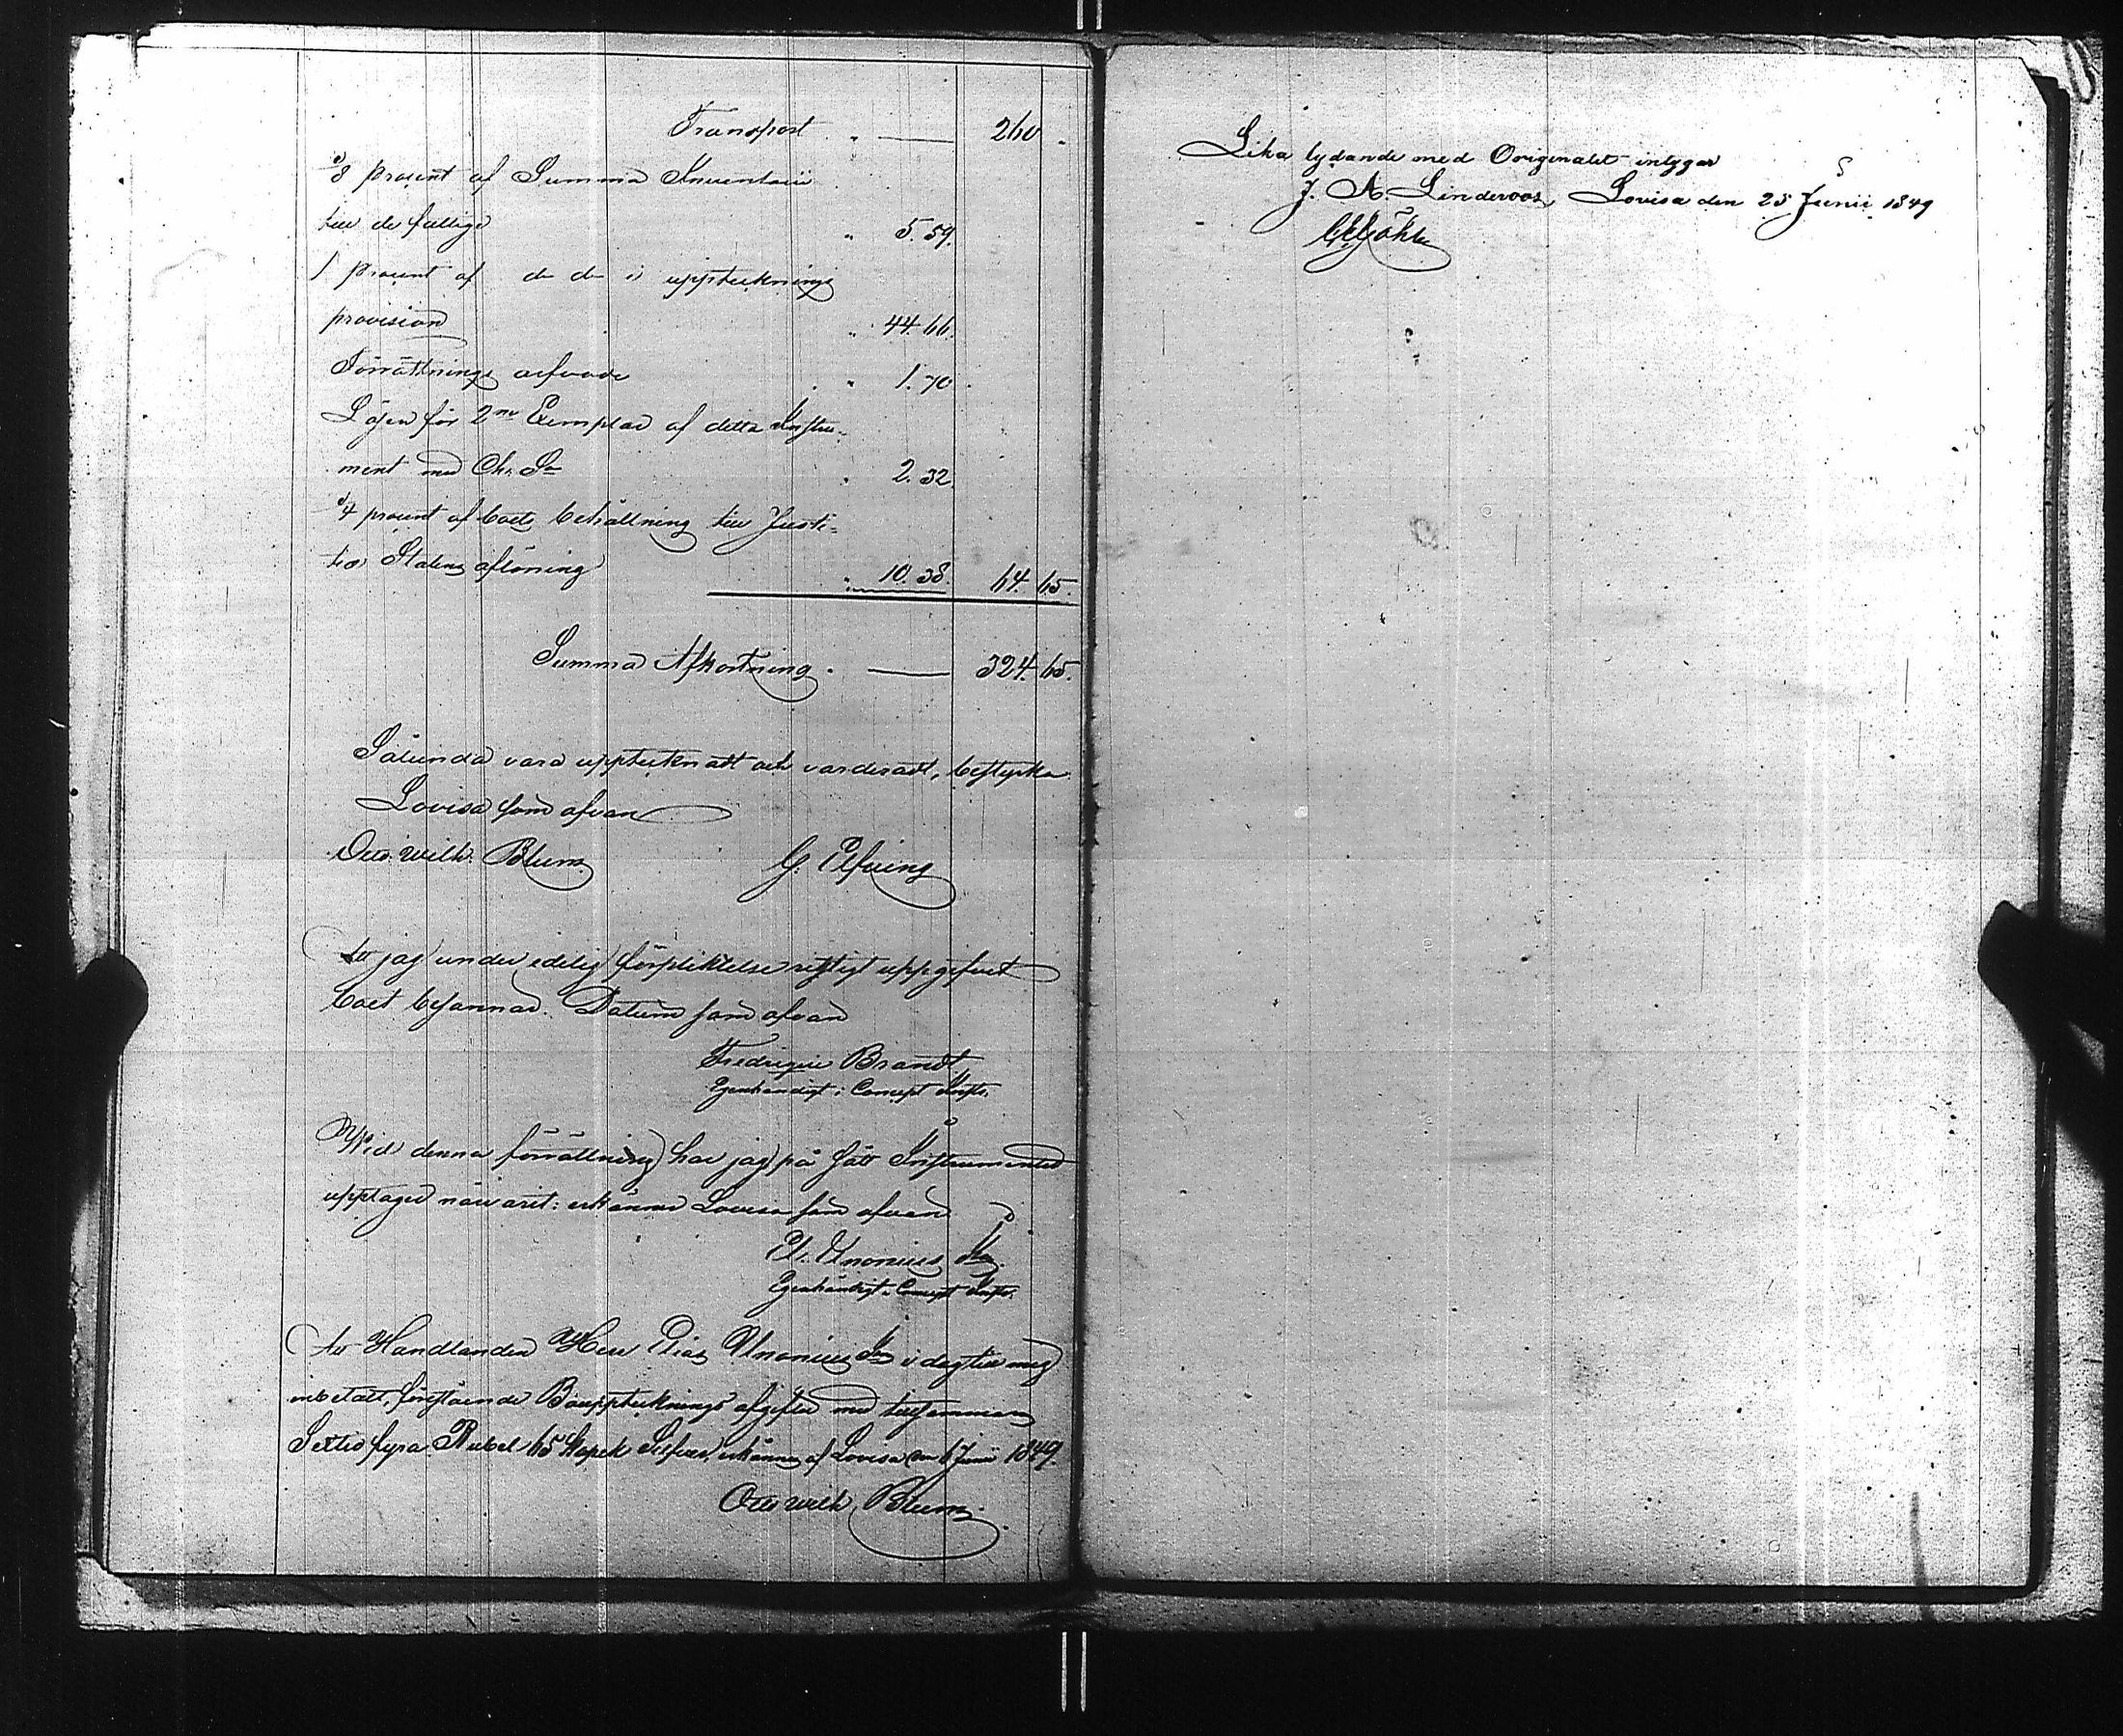 Transport " — 260 .
1/8 procent af Summa Inventarii
till de fattige " 5. 59.
1 procent af do do i upptecknings
provision " 44. 66.
Förrättnings arfvode " 1. 70.
Lösen för 2ne Exemplar af detta Instru-
ment med Ch. Sa " 2. 32.
1/4 procent af boets behållning till Justi-
tiæ Statens aflöning " 10. 38. 64. 65.
Summa Afkortning . — 324. 65.
Sålunda vara upptecknadt och värderadt, bestyrka
Lovisa som ofvan
Otto Wilh. Blum G. Elfving
Att jag under edelig förpliktelse rigtigt uppgifvit
boet besannar. Datum som ofvan
Frederique Brandt
Egenhändigt i Concept Instr.
Wid denna förrättning har jag på sätt Instrumentet
upptager närvarit: erkänner Lovisa som ofvan
El. Unonius
Egenhändigt i Concept Instr.
Att Handlanden Herr Elias Unonius i dag till mig
inbetalt förestående Bouppteknings afgifter med tillsammans
Sextio fyra Rubel 65 Kopek Silfver, erkännes af Lovisa den 6 Junii 1849.
Otto Wilh. Blum
Lika lydande med Originalet intygar
J. A. Linderoos, Lovisa den 25 Junii 1849